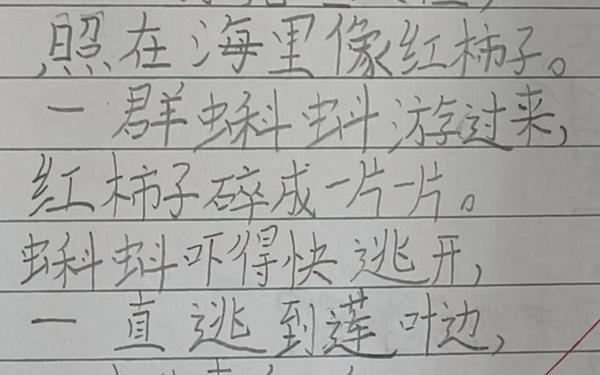 照在海里像红柿子。
一群蝌蚪游过来,
红柿子碎成一片一片。
蝌蚪吓得快逃开,
一直逃到莲叶边,